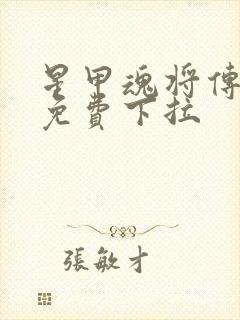 星甲魂将傳
免費下拉
張敏才